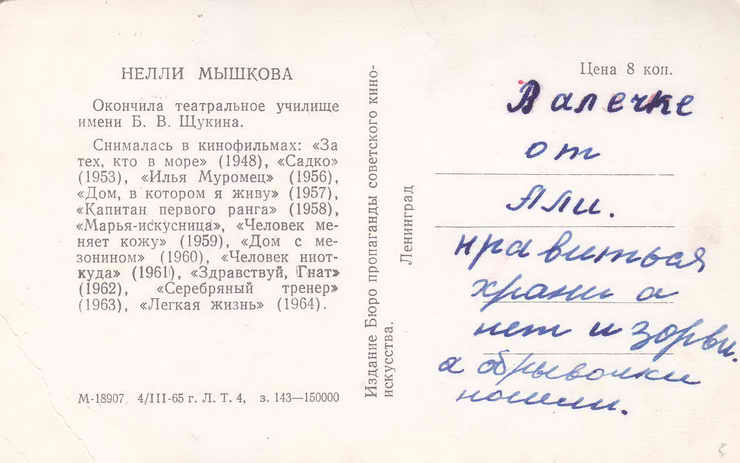 НЕЛЛИ МЫШКОВА
Окончила театральное училище
имени Б. В. Щукина.
Снималась в кинофильмах: «За
тех, кто в море» (1948), «Садко»
(1953), «Илья Муромец» (1956),
«Дом, в котором я живу» (1957),
«Капитан первого ранга» (1958),
«Марья-искусница», «Человек ме-
няет кожу» (1959), «Дом с ме-
зонином» (1960), «Человек ниот-
куда» (1961), «Здравствуй, Гнат»
(1962), «Серебряный тренер»
(1963), «Легкая жизнь» (1964).
М-18907 4/III-65 г. Л. Т. 4, з. 143—150000
Издание Бюро пропаганды советского кино-
искусства.
Ленинград
Цена 8 коп.
Валечке
от
Али.
нравиться
храни а
нет изорви.
а обрывочки
пошли.